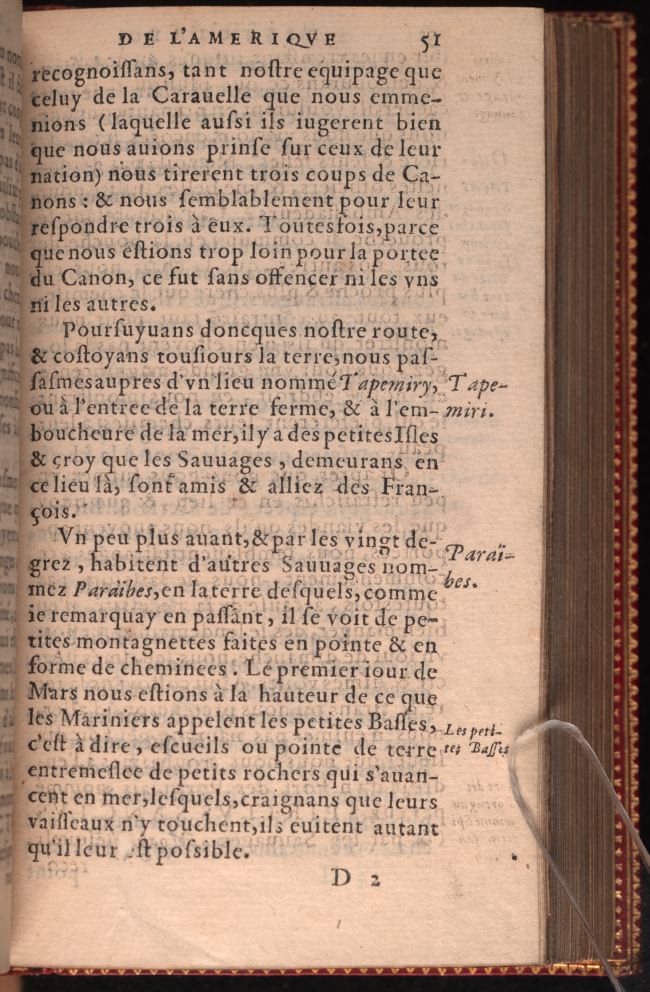 DE L'AMERIQVE 51
recognoiſſans, tant noſtre equipage que
celuy de la Carauelle que nous emme-
nions (laquelle auſsi ils iugerent bien
que nous auions prinſe ſur ceux de leur
nation) nous tirerent trois coups de Ca-
nons : & nous ſemblablement pour leur
reſpondre trois à eux. Toutesfois, parce
que nous eſtions trop loin pour la portee
du Canon, ce fut ſans offencer ni les vns
ni les autres.
Pourſuyuans doncques noſtre route,
& coſtoyans touſiours la terre, nous paſ-
ſaſmes aupres d'vn lieu nommé Tapemiry,
Tape-
miri.
ou à l'entree de la terre ferme, & à l'em-
boucheure de la mer, il y a des petites Iſles
& croy que les Sauuages, demeurans en
ce lieu là, ſont amis & alliez des Fran-
çois.
Vn peu plus auant, & par les vingt de-
Paraï-
bes.
grez, habitent d'autres Sauuages nom-
mez Paraïbes, en la terre deſquels, comme
ie remarquay en paſſant, il ſe voit de pe-
tites montagnettes faites en pointe & en
forme de cheminees. Le premier iour de
Mars nous eſtions à la hauteur de ce que
les Mariniers appelent les petites Baſſes,
Les peti-
tes Baſſes
c'eſt à dire, eſcueils ou pointe de terre
entremeſlee de petits rochers qui s'auan-
cent en mer, leſquels, craignans que leurs
vaiſſeaux n'y touchent, ils euitent autant
qu'il leur eſt poſsible.
D 2